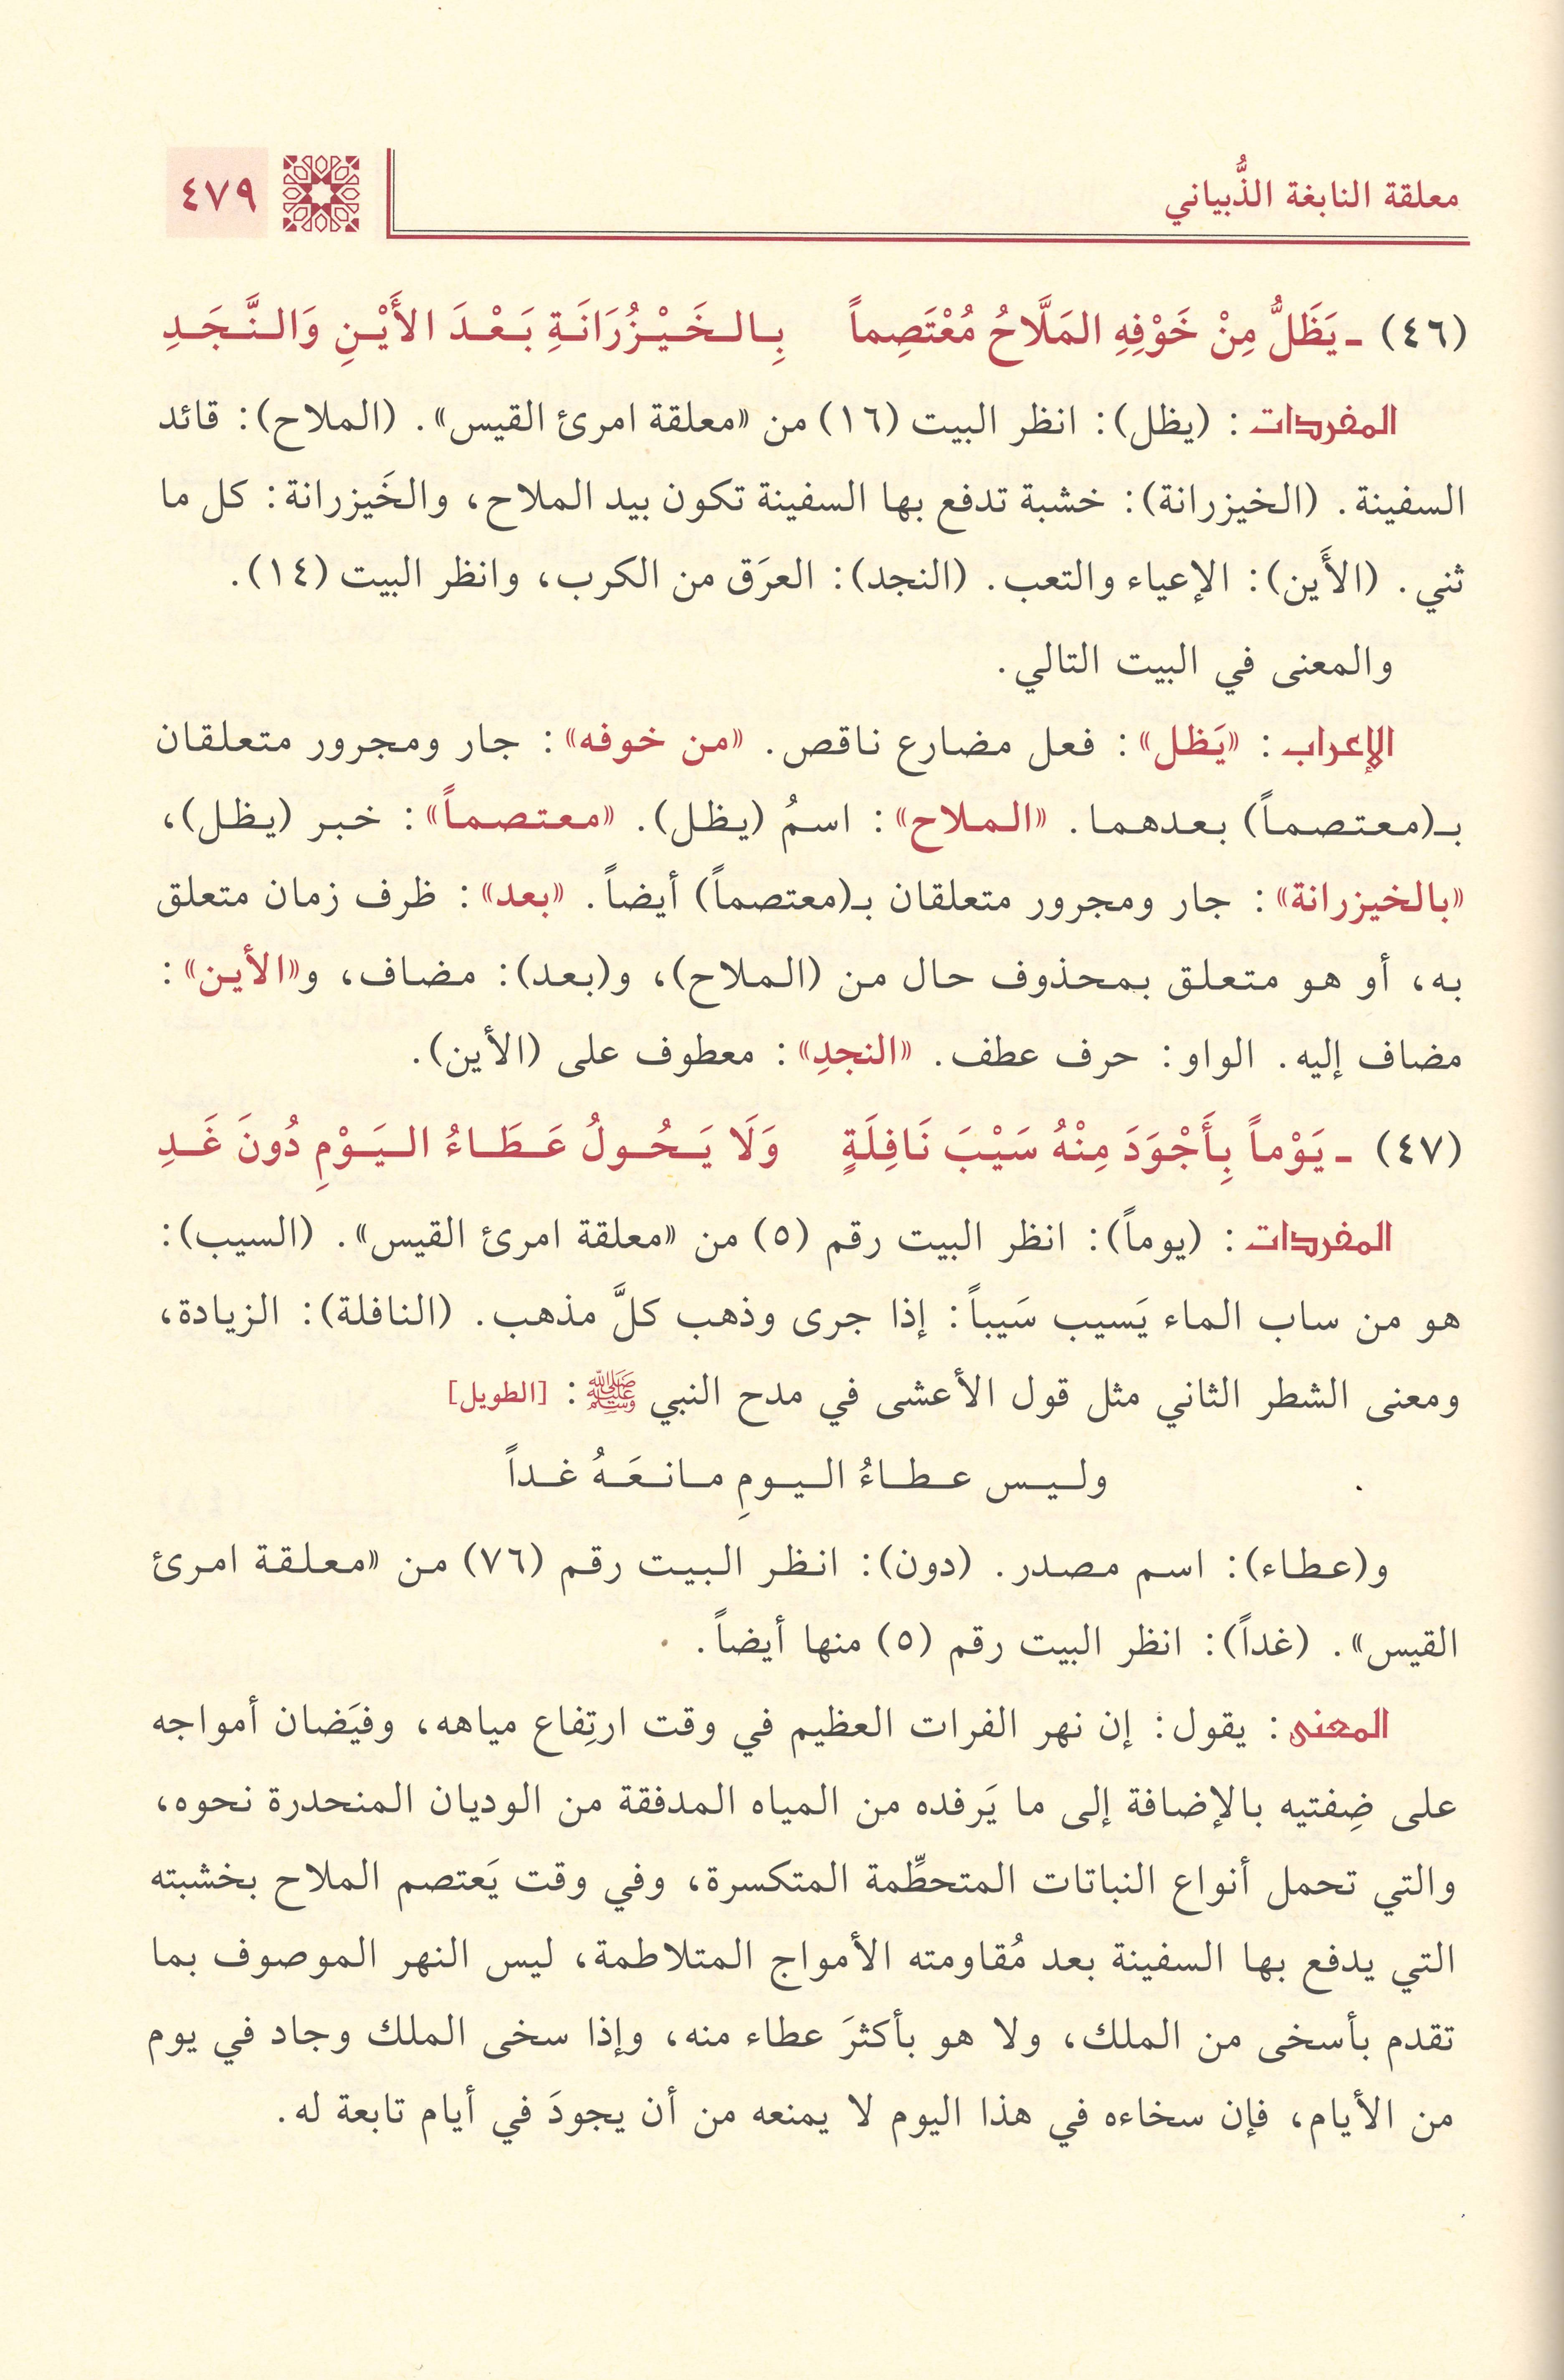 معلقة النابغة الذُّبياني
٤٧٩
(٤٦) ـ يَظَلُّ مِنْ خَوْفِهِ المَلَّاحُ مُعْتَصِماً بِالخَيْزُرَانَةِ بَعْدَ الأَيْنِ وَالنَّجَدِ
المفردات: (يظل): انظر البيت (١٦) من «معلقة امرئ القيس». (الملاح): قائد
السفينة. (الخيزرانة): خشبة تدفع بها السفينة تكون بيد الملاح، والخَيزرانة: كل ما
ثني. (الأَين): الإعياء والتعب. (النجد): العرَق من الكرب، وانظر البيت (١٤).
والمعنى في البيت التالي.
الإعراب: «يَظل»: فعل مضارع ناقص. «من خوفه»: جار ومجرور متعلقان
بـ(معتصماً) بعدهما. «الملاح»: اسمُ (يظل). «معتصماً»: خبر (يظل)،
«بالخيزرانة»: جار ومجرور متعلقان بـ(معتصماً) أيضاً. «بعد»: ظرف زمان متعلق
به، أو هو متعلق بمحذوف حال من (الملاح)، و(بعد): مضاف، و«الأين»:
مضاف إليه. الواو: حرف عطف. «النجدِ»: معطوف على (الأين).
(٤٧) ـ يَوْماً بِأَجْوَدَ مِنْهُ سَيْبَ نَافِلَةٍ وَلَا يَحُولُ عَطَاءُ اليَوْمِ دُونَ غَدِ
المفردات: (يوماً): انظر البيت رقم (٥) من «معلقة امرئ القيس». (السيب):
هو من ساب الماء يَسيب سَيباً: إذا جرى وذهب كلَّ مذهب. (النافلة): الزيادة،
ومعنى الشطر الثاني مثل قول الأعشى في مدح النبي ﷺ: [الطويل]
وليس عطاءُ اليومِ مانعَهُ غداً
و(عطاء): اسم مصدر. (دون): انظر البيت رقم (٧٦) من «معلقة امرئ
القيس». (غداً): انظر البيت رقم (٥) منها أيضاً.
المعنى: يقول: إن نهر الفرات العظيم في وقت ارتِفاع مياهه، وفيَضان أمواجه
على ضِفتيه بالإضافة إلى ما يَرفده من المياه المدفقة من الوديان المنحدرة نحوه،
والتي تحمل أنواع النباتات المتحطِّمة المتكسرة، وفي وقت يَعتصم الملاح بخشبته
التي يدفع بها السفينة بعد مُقاومته الأمواج المتلاطمة، ليس النهر الموصوف بما
تقدم بأسخى من الملك، ولا هو بأكثرَ عطاء منه، وإذا سخى الملك وجاد في يوم
من الأيام، فإن سخاءه في هذا اليوم لا يمنعه من أن يجودَ في أيام تابعة له.